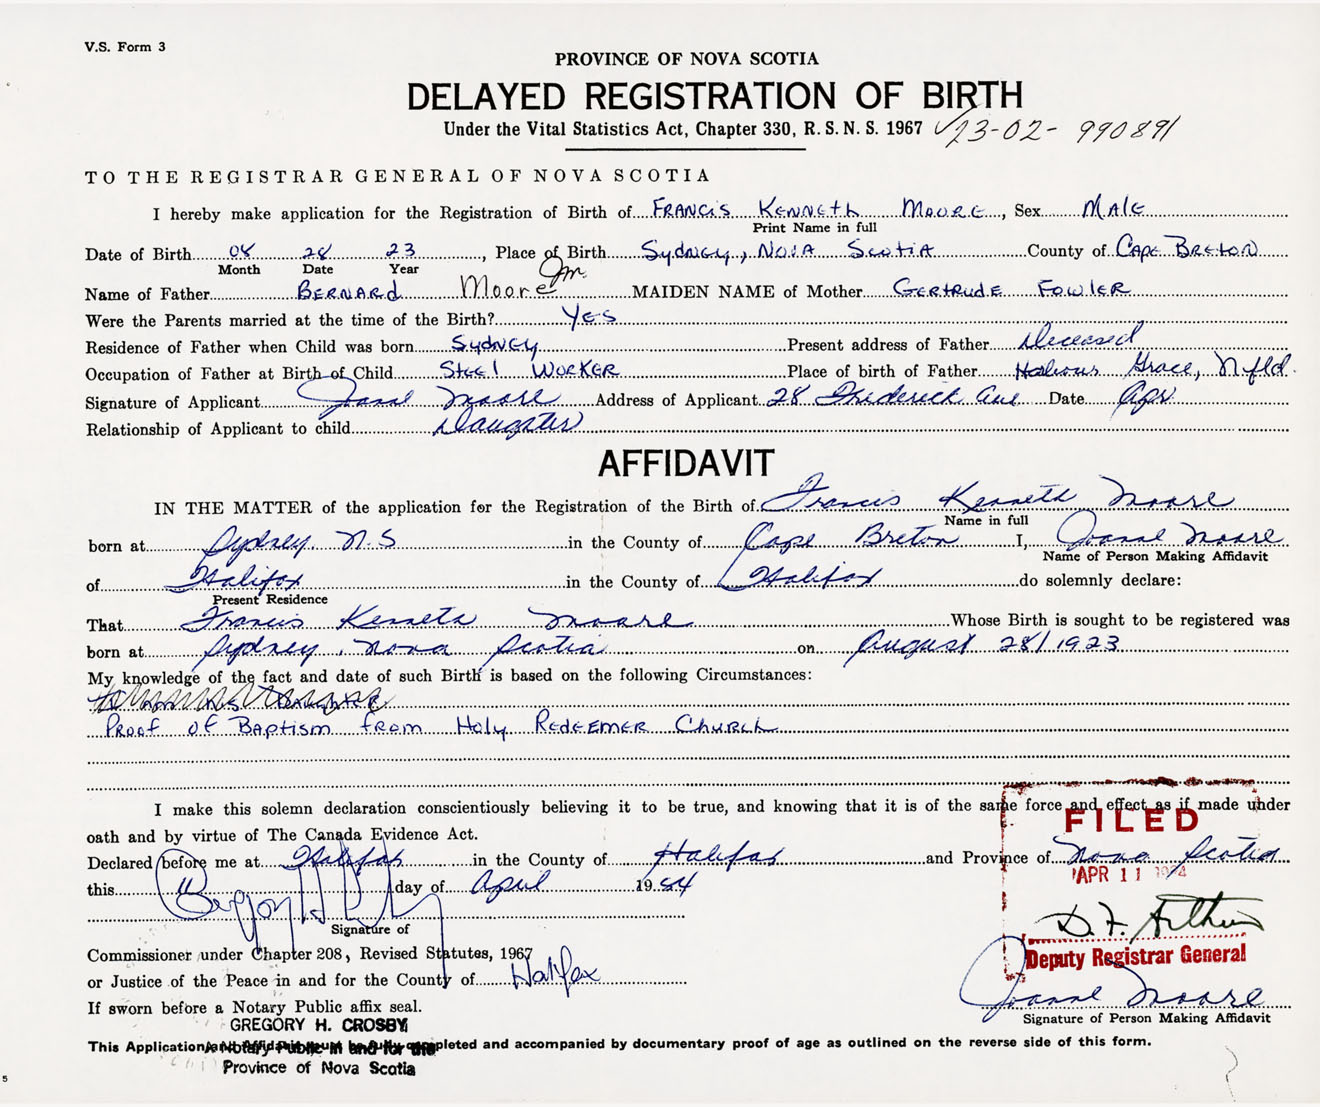 V.S. Form 3
PROVINCE OF NOVA SCOTIA
DELAYED REGISTRATION OF BIRTH
Under the Vital Statistics Act, Chapter 330, R.S.N.S. 1967 23-02- 990891
TO THE REGISTRAR GENERAL OF NOVA SCOTIA
I hereby make application for the Registration of Birth of FRANCIS KENNETH MOORE, Sex MALE
Print Name in full
Date of Birth 08 28 23, Place of Birth Sydney, NOVA Scotia County of CAPE BRETON
Month Date Year
Name of Father BERNARD Moore MAIDEN NAME of Mother GERTRUDE FOWLER
Were the Parents married at the time of the Birth? YES
Residence of Father when Child was born SYDNEY Present address of Father Deceased
Occupation of Father at Birth of Child STEEL WORKER Place of birth of Father Grace, Nfld.
Signature of Applicant Moore Address of Applicant 28 Frederick Ave Date Apr
Relationship of Applicant to child Daughter
AFFIDAVIT
IN THE MATTER of the application for the Registration of the Birth of Francis Kenneth Moore
Name in full
born at Sydney, N.S in the County of Cape Breton I, Moore
Name of Person Making Affidavit
of Halifax in the County of Halifax do solemnly declare:
Present Residence
That Francis Kenneth Moore Whose Birth is sought to be registered was
born at Sydney, Nova Scotia on August 28/1923
My knowledge of the fact and date of such Birth is based on the following Circumstances:
Proof of Baptism from Holy REDEEMER CHURCH
I make this solemn declaration conscientiously believing it to be true, and knowing that it is of the same force and effect as if made under
oath and by virtue of The Canada Evidence Act.
FILED
Declared before me at Halifax in the County of Halifax and Province of Nova Scotia
APR 11
this 11 day of April 1984
D.F. Arthur
Signature of
Deputy Registrar General
Commissioner under Chapter 208, Revised Statutes, 1967
or Justice of the Peace in and for the County of Halifax
Moore
If sworn before a Notary Public affix seal.
Signature of Person Making Affidavit
GREGORY H. CROSBY
This Application and Affidavit must be fully completed and accompanied by documentary proof of age as outlined on the reverse side of this form.
A Notary Public in and for the
Province of Nova Scotia
5